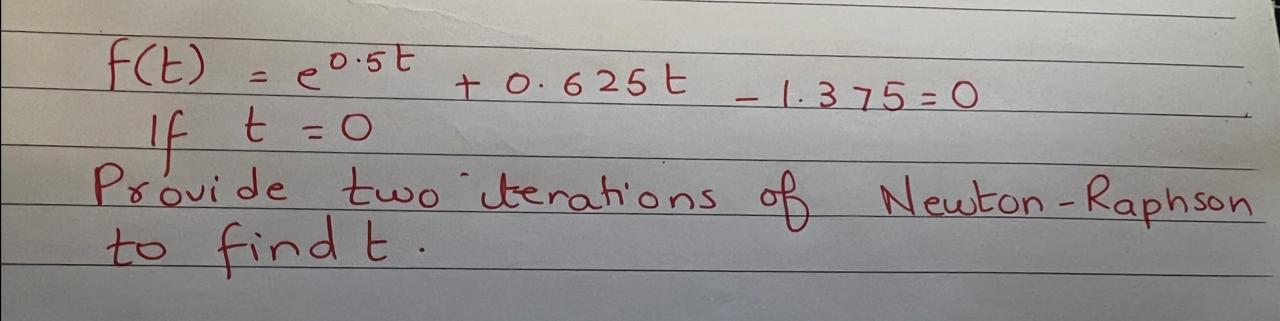 f(t) = e^0.5t + 0.625t - 1.375 = 0
If t = 0
Provide two iterations of Newton-Raphson
to find t.